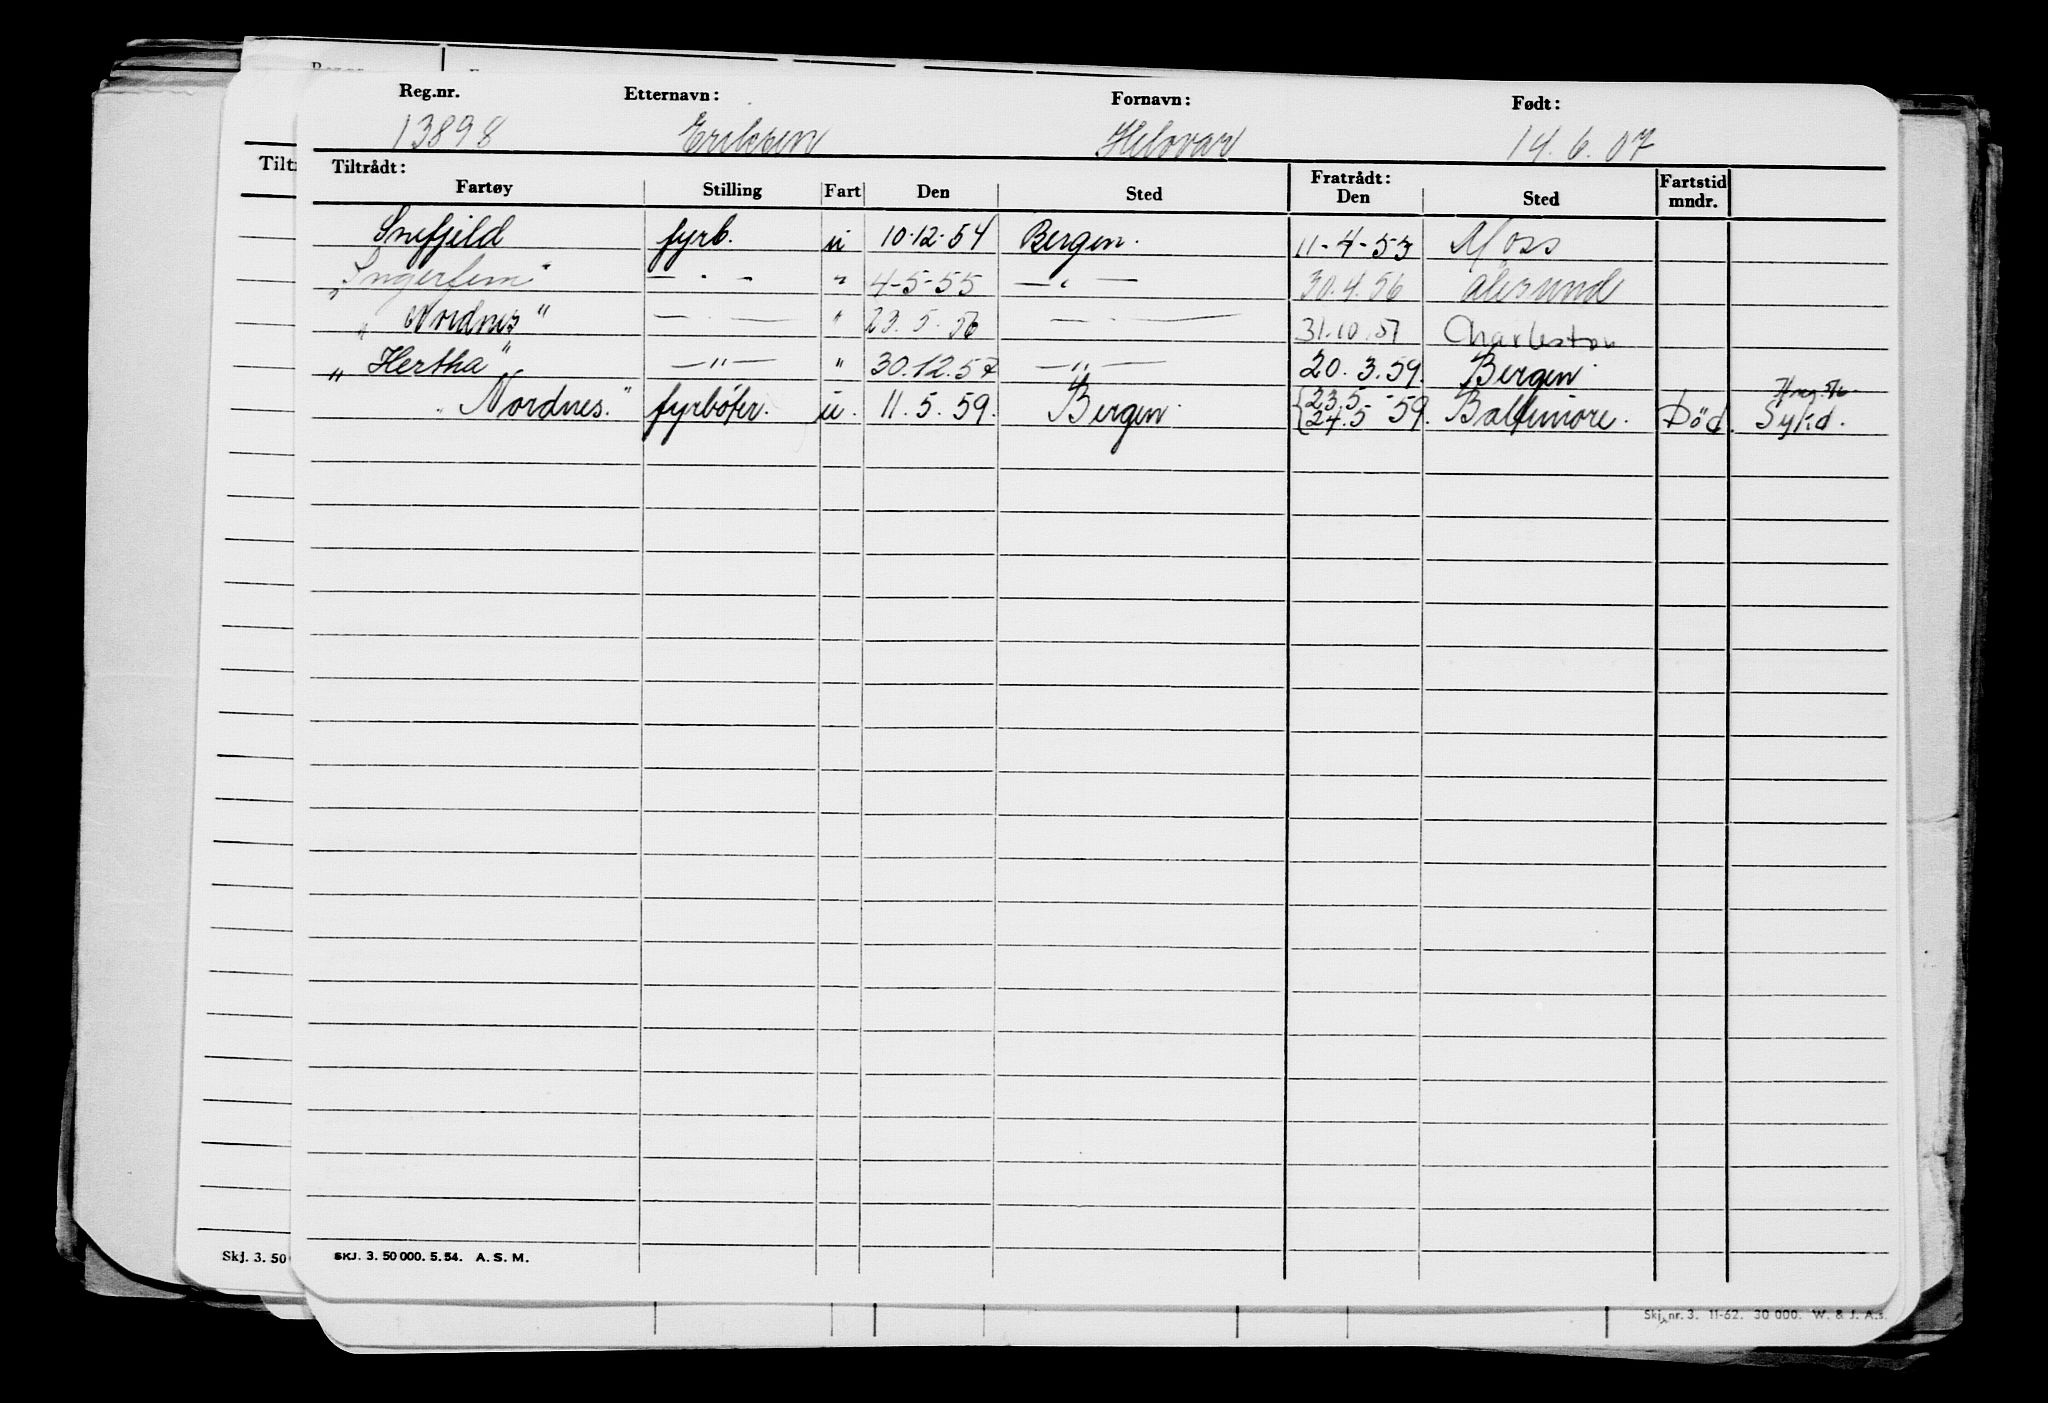 Reg.nr. Etternavn: Fornavn: Født:
13898 Eriksen 14.6.07
Tiltrådt: Fratrådt: Fartstid
Fartøy Stilling Fart Den Sted Den Sted mndr.
Snefjeld fyrb. u 10-12-54 Bergen. 11-4-55 Moss
"Ingerfem" — . — " 4-5-55 — . — 30.4.56 Ålesund
"Nordnes" — . — " 23.5.56 — . — 31.10.57 Charleston
"Hertha" — " — " 30.12.57 — " — 20.3.59. Bergen.
"Nordnes." fyrbøter. u. 11.5.59. Bergen. {23.5 - 59. Baltimore. Död. Sykd.
{24.5
SKJ. 3. 50 000. 5. 54. A. S. M.
Skj. 3. 50
Skj. nr. 3. 11-62. 30 000. W. & J. A.s.